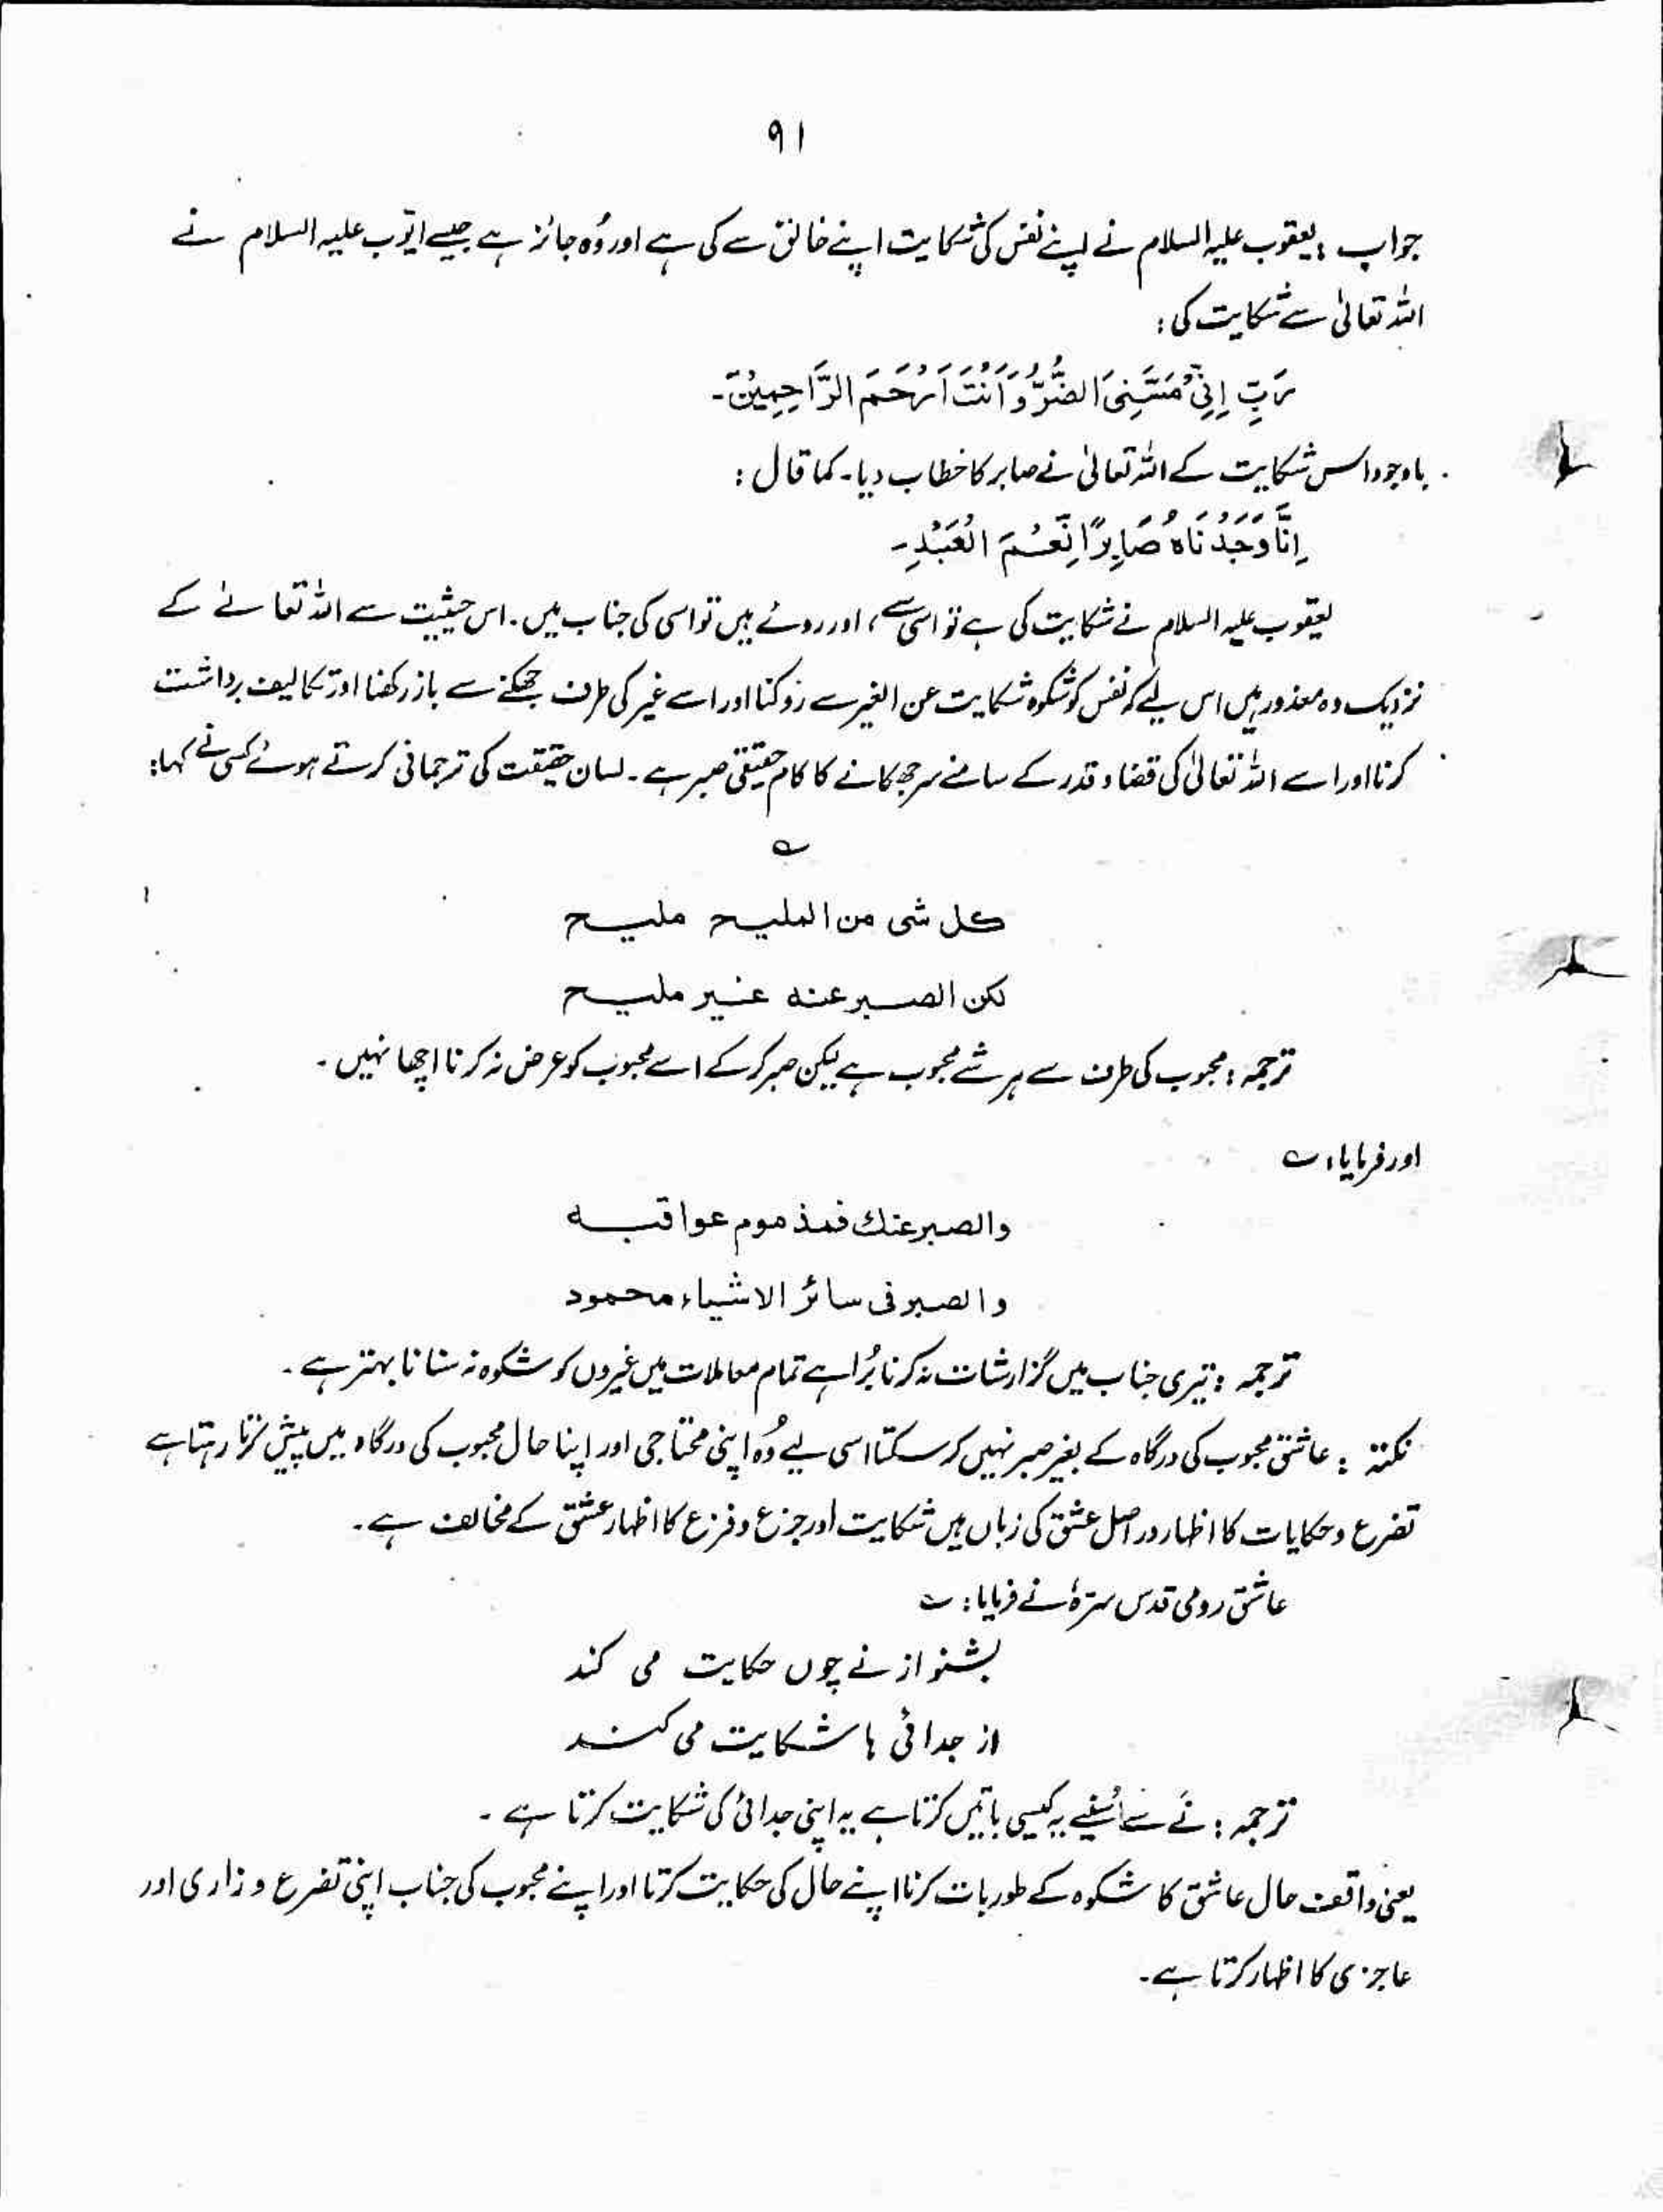 ۹۱
جواب : یعقوب علیہ السلام نے اپنے نفس کی شکایت اپنے خالق سے کی ہے اور وُہ جائز ہے جیسے ایّوب علیہ السلام نے
اللہ تعالیٰ سے شکایت کی :
رَبِّ اِنِّیْ مَسَّنِیَ الضُّرُّ وَاَنْتَ اَرْحَمَ الرَّاحِمِیْنَ۔
باوجود اس شکایت کے اللہ تعالیٰ نے صابر کا خطاب دیا۔ کما قال :
اِنَّا وَجَدْنَاہُ صَابِرًا نِعْمَ الْعَبْدِ۔
یعقوب علیہ السلام نے شکایت کی ہے تو اسی سے، اور روئے ہیں تو اسی کی جناب میں۔ اس حیثیت سے اللہ تعالےٰ کے
نزدیک وہ معذور ہیں اس لیے کہ نفس کو شکوہ شکایت عن الغیر سے روکنا اور اسے غیر کی طرف جھکنے سے باز رکھنا اور تکالیف برداشت
کرنا اور اسے اللہ تعالیٰ کی قضاء و قدر کے سامنے سر جھکانے کا کام حقیقی صبر ہے۔ لسان حقیقت کی ترجمانی کرتے ہوئے کسی نے کہا :
؎
کل شی من الملیح ملیح
لکن الصبر عنہ غیر ملیح
ترجمہ : محبوب کی طرف سے ہر شے محبوب ہے لیکن صبر کر کے اسے محبوب کو عرض نہ کرنا اچھا نہیں۔
اور فرمایا : ؎
والصبر عنك فمذموم عواقبہ
والصبر فی سائر الاشیاء محمود
ترجمہ : تیری جناب میں گزارشات نہ کرنا بُرا ہے تمام معاملات میں غیروں کو شکوہ نہ سنانا بہتر ہے۔
نکتہ : عاشق محبوب کی درگاہ کے بغیر صبر نہیں کر سکتا اسی لیے وُہ اپنی محتاجی اور اپنا حال محبوب کی درگاہ میں پیش کرتا رہتا ہے
تضرع و حکایات کا اظہار در اصل عشق کی زباں میں شکایت اور جزع و فزع کا اظہار عشق کے مخالف ہے۔
عاشق رومی قدس سترہٗ نے فرمایا : ؎
بشنو از نے چوں حکایت می کند
از جدائی ہا شکایت می کند
ترجمہ : نَے سے سُنیے یہ کیسی باتیں کرتا ہے یہ اپنی جدائی کی شکایت کرتا ہے۔
یعنی واقف حال عاشق کا شکوہ کے طور بات کرنا اپنے حال کی حکایت کرتا اور اپنے محبوب کی جناب اپنی تضرع و زاری اور
عاجزی کا اظہار کرتا ہے۔